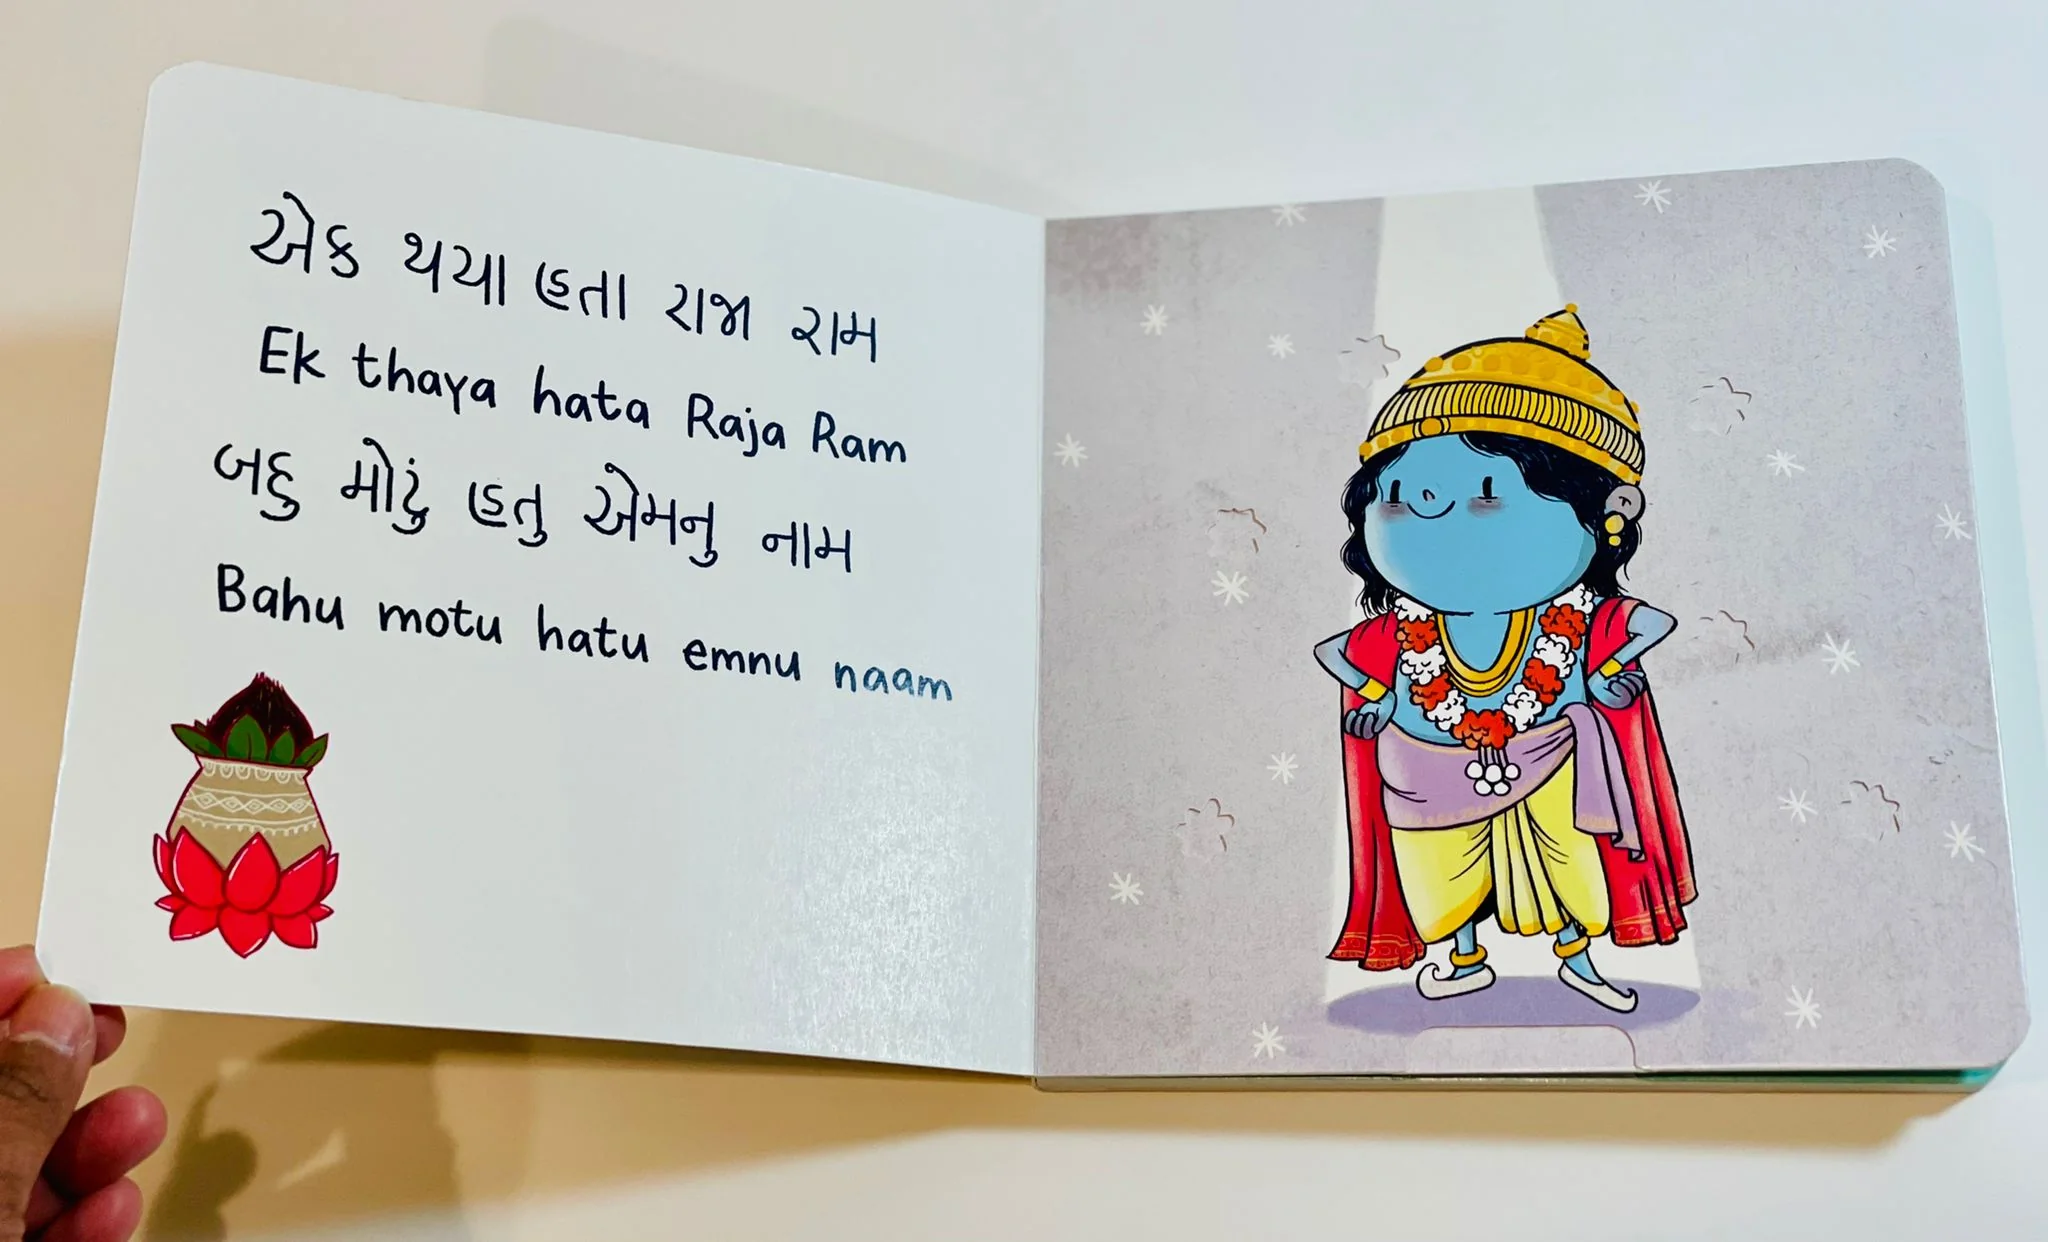 એક થયા હતા રાજા રામ
Ek thaya hata Raja Ram
બહુ મોટું હતુ એમનુ નામ
Bahu motu hatu emnu naam